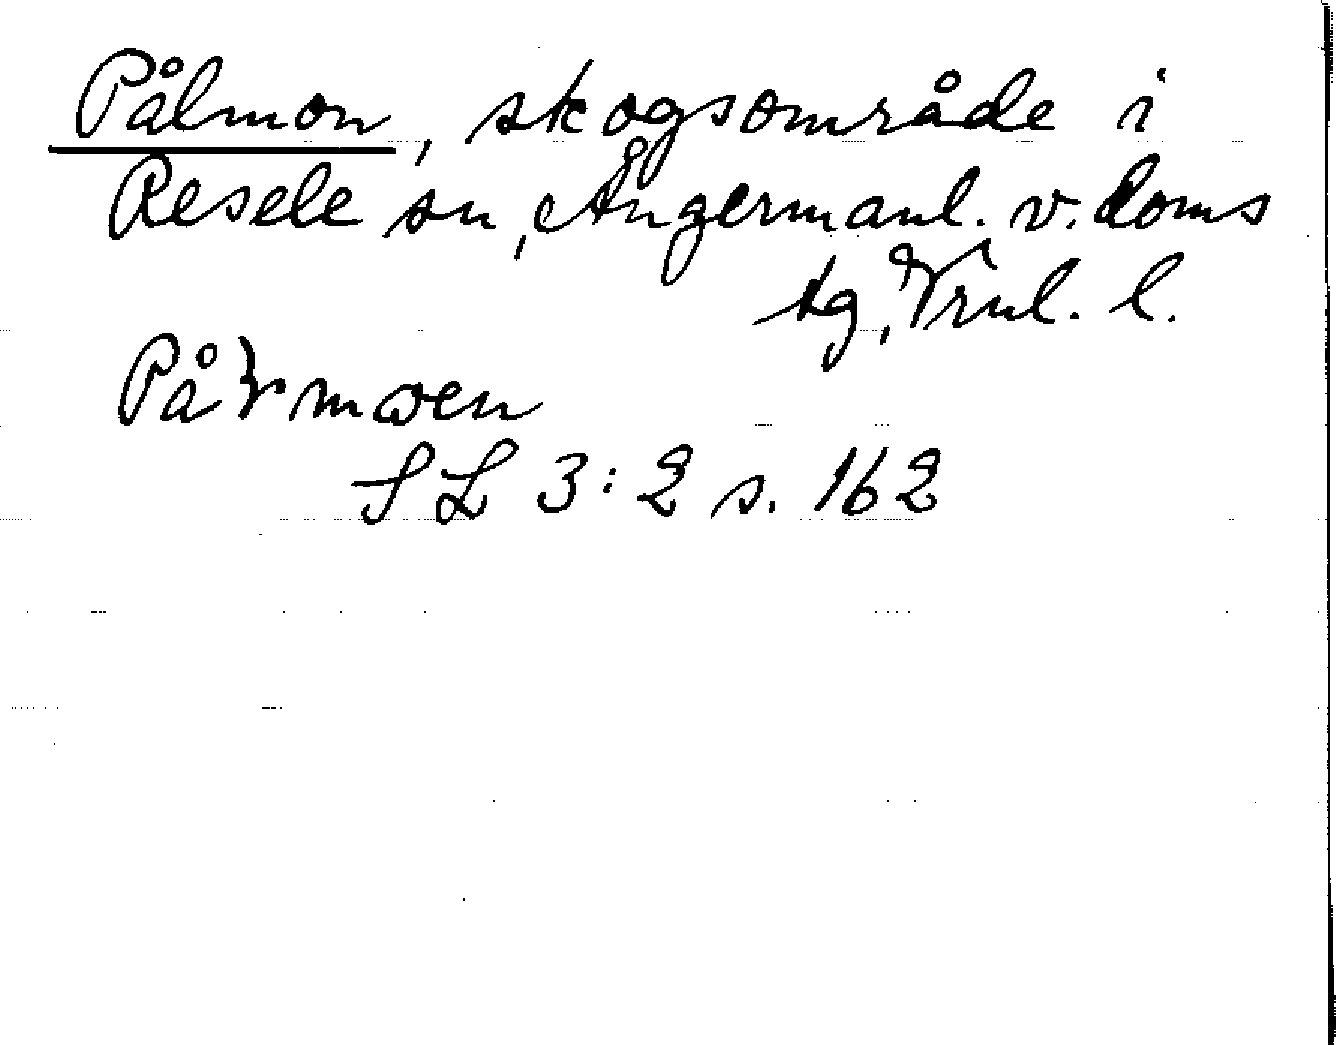 Pålmon, skogsområde i
Resele sn, Ångermanl. v. doms
tg, Vrnl. l.
SL 3:2 s. 162